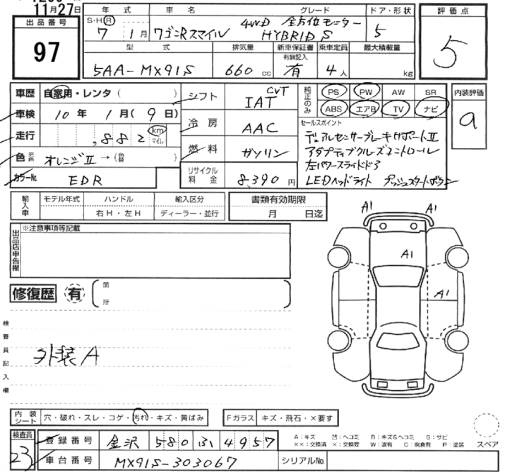 11月27日
出品番号 97
年式 車名 グレード ドア・形状
S・H・R 7年 1月 ワゴンRスマイル 4WD 全方位モニター HYBRID S 5
評価点 5
型式 排気量 新車保証書 有効記入 乗車定員 最大積載量
5AA-MX91S 660cc 有 4人 kg
車歴 自家用・レンタ( ) シフト CVT IAT
車検 10年 1月(9日) 冷房 AAC
走行 882 km マイル 燃料 ガソリン
色 オレンジII→( ) リサイクル料金 8,390円
カラーNo. EDR
純正のみ PS PW AW SR
ABS エアB TV ナビ
内装評価 a
セールスポイント
デュアルセンサーブレーキサポートII
アダプティブクルーズコントロール
左パワースライドドア
LEDヘッドライト プッシュスタートボタン
輸入車 モデル年式 ハンドル 輸入区分 書類有効期限
右H・左H ディーラー・並行 月 日迄
出品店申告欄 ※注意事項等記載
修復歴 有 箇所
検査員記入欄
外装A
A1 A1
A1
A1
内装シート 穴・破れ・スレ・コゲ・汚れ・キズ・黄ばみ Fガラス キズ・飛石・×要す
検査員 23
登録番号 金沢 580 い 4957
車台番号 MX91S-303067 シリアルNo.
A:キズ U:ヘコミ B:キズ&ヘコミ S:サビ
××:交換済 ×:交換要 W:波 C:腐食 P:塗装
スペア